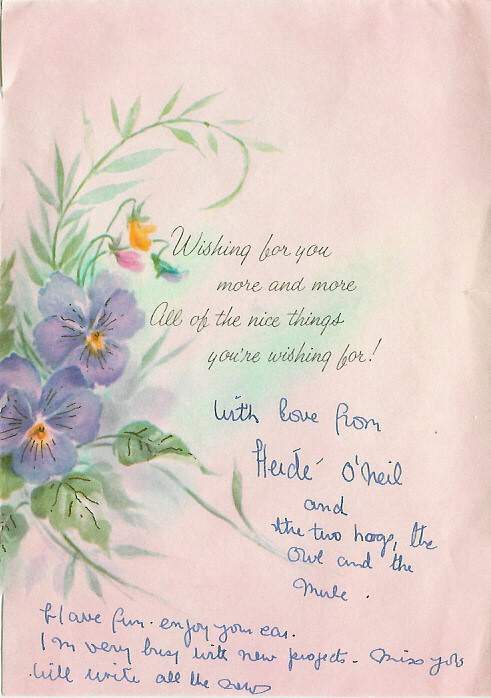 Wishing for you
more and more
All of the nice things
you're wishing for!
With love from
Heidé O'Neil
and
the two hogs, the
Owl and the
Mule.
Have fun. enjoy your ear.
I'm very busy with new projects - Miss you
Will write all the news